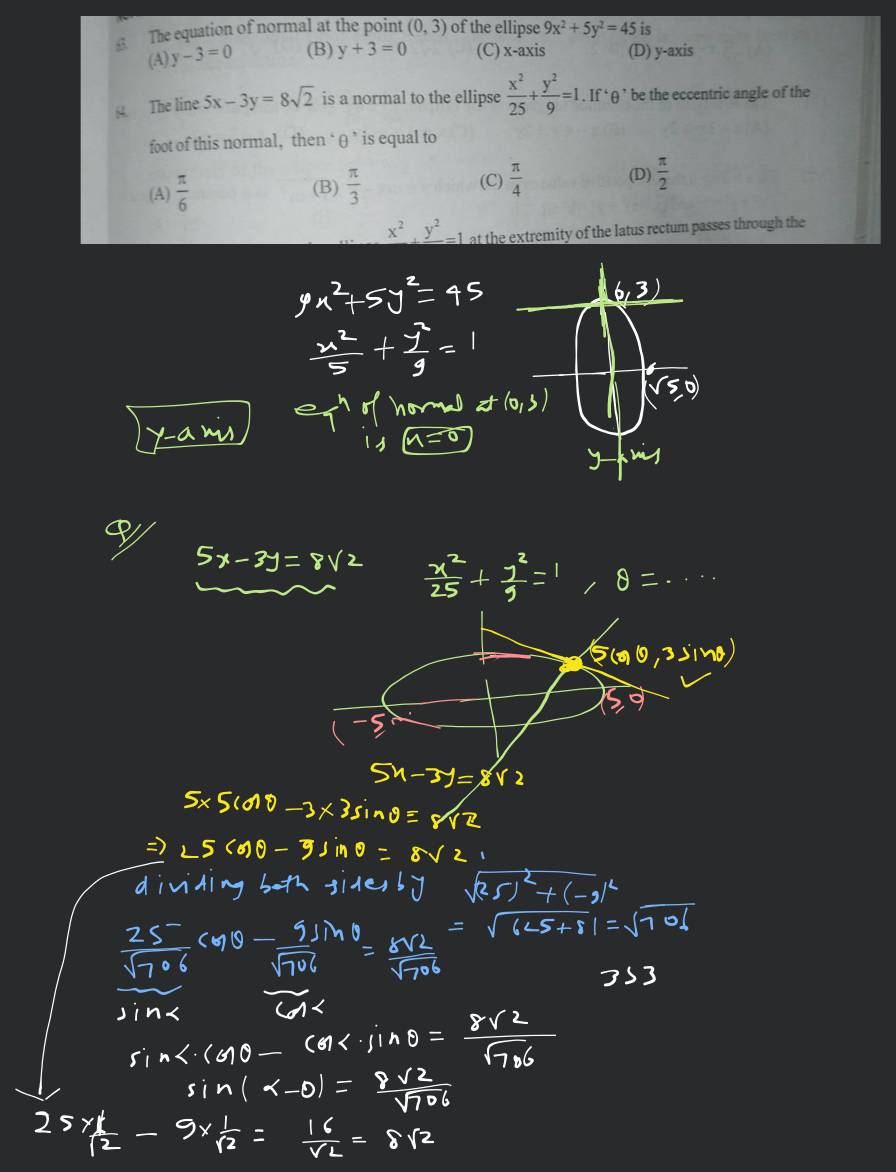 63. The equation of normal at the point (0, 3) of the ellipse 9x² + 5y² = 45 is
(A) y – 3 = 0 (B) y + 3 = 0 (C) x-axis (D) y-axis
64. The line 5x – 3y = 8√2 is a normal to the ellipse x²/25 + y²/9 = 1. If ‘θ’ be the eccentric angle of the
foot of this normal, then ‘θ’ is equal to
(A) π/6 (B) π/3 (C) π/4 (D) π/2
x²/ y²/ =1 at the extremity of the latus rectum passes through the
9x² + 5y² = 45
(0,3)
x²/5 + y²/9 = 1
(√5,0)
eqⁿ of normal at (0,3)
is x=0
y-axis
y-axis
Q//
5x – 3y = 8√2
x²/25 + y²/9 = 1 , θ = ....
(5cosθ, 3sinθ)
(5,0)
(-5
5x – 3y = 8√2
5×5cosθ – 3×3sinθ = 8√2
⇒ 25cosθ – 9sinθ = 8√2 .
dividing both sides by √(25)²+(-9)²
= √625+81 = √706
25/√706 cosθ – 9sinθ/√706 = 8√2/√706
353
sinα cosα
sinα.cosθ – cosα.sinθ = 8√2/√706
sin(α-θ) = 8√2/√706
25×1/√2 – 9×1/√2 = 16/√2 = 8√2